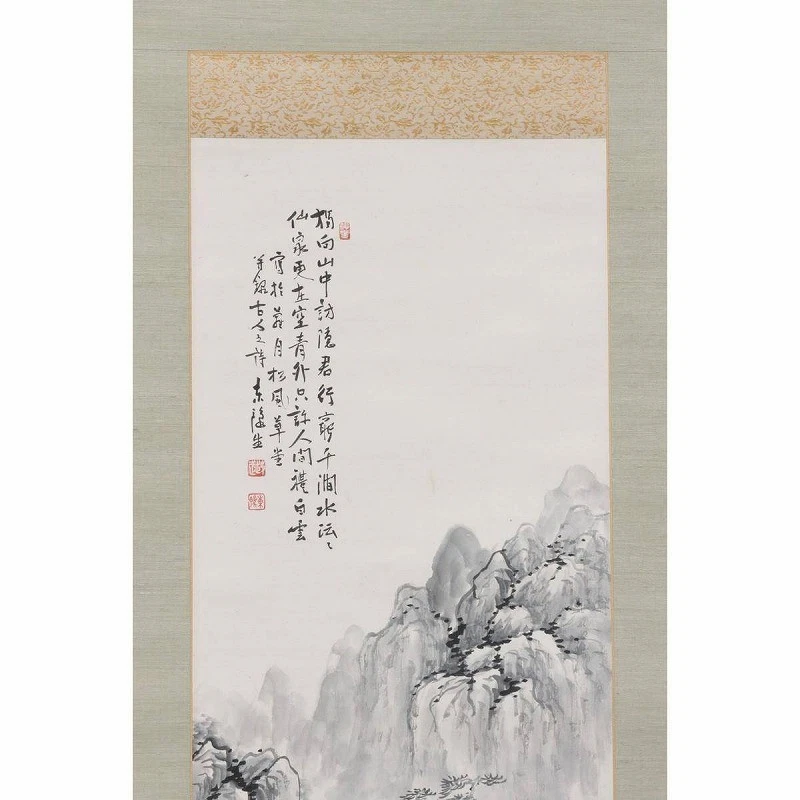 獨向山中訪隱君行窮千澗水沄〻
仙家更在空青外只許人間禮白雲
寫於蘿月松風草堂
并錄古人之詩 東隆生